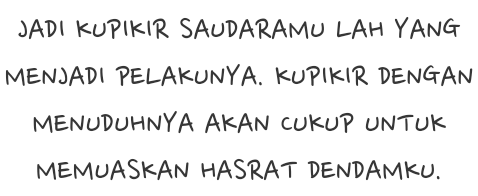 JADI KUPIKIR SAUDARAMU LAH YANG
MENJADI PELAKUNYA. KUPIKIR DENGAN
MENUDUHNYA AKAN CUKUP UNTUK
MEMUASKAN HASRAT DENDAMKU.